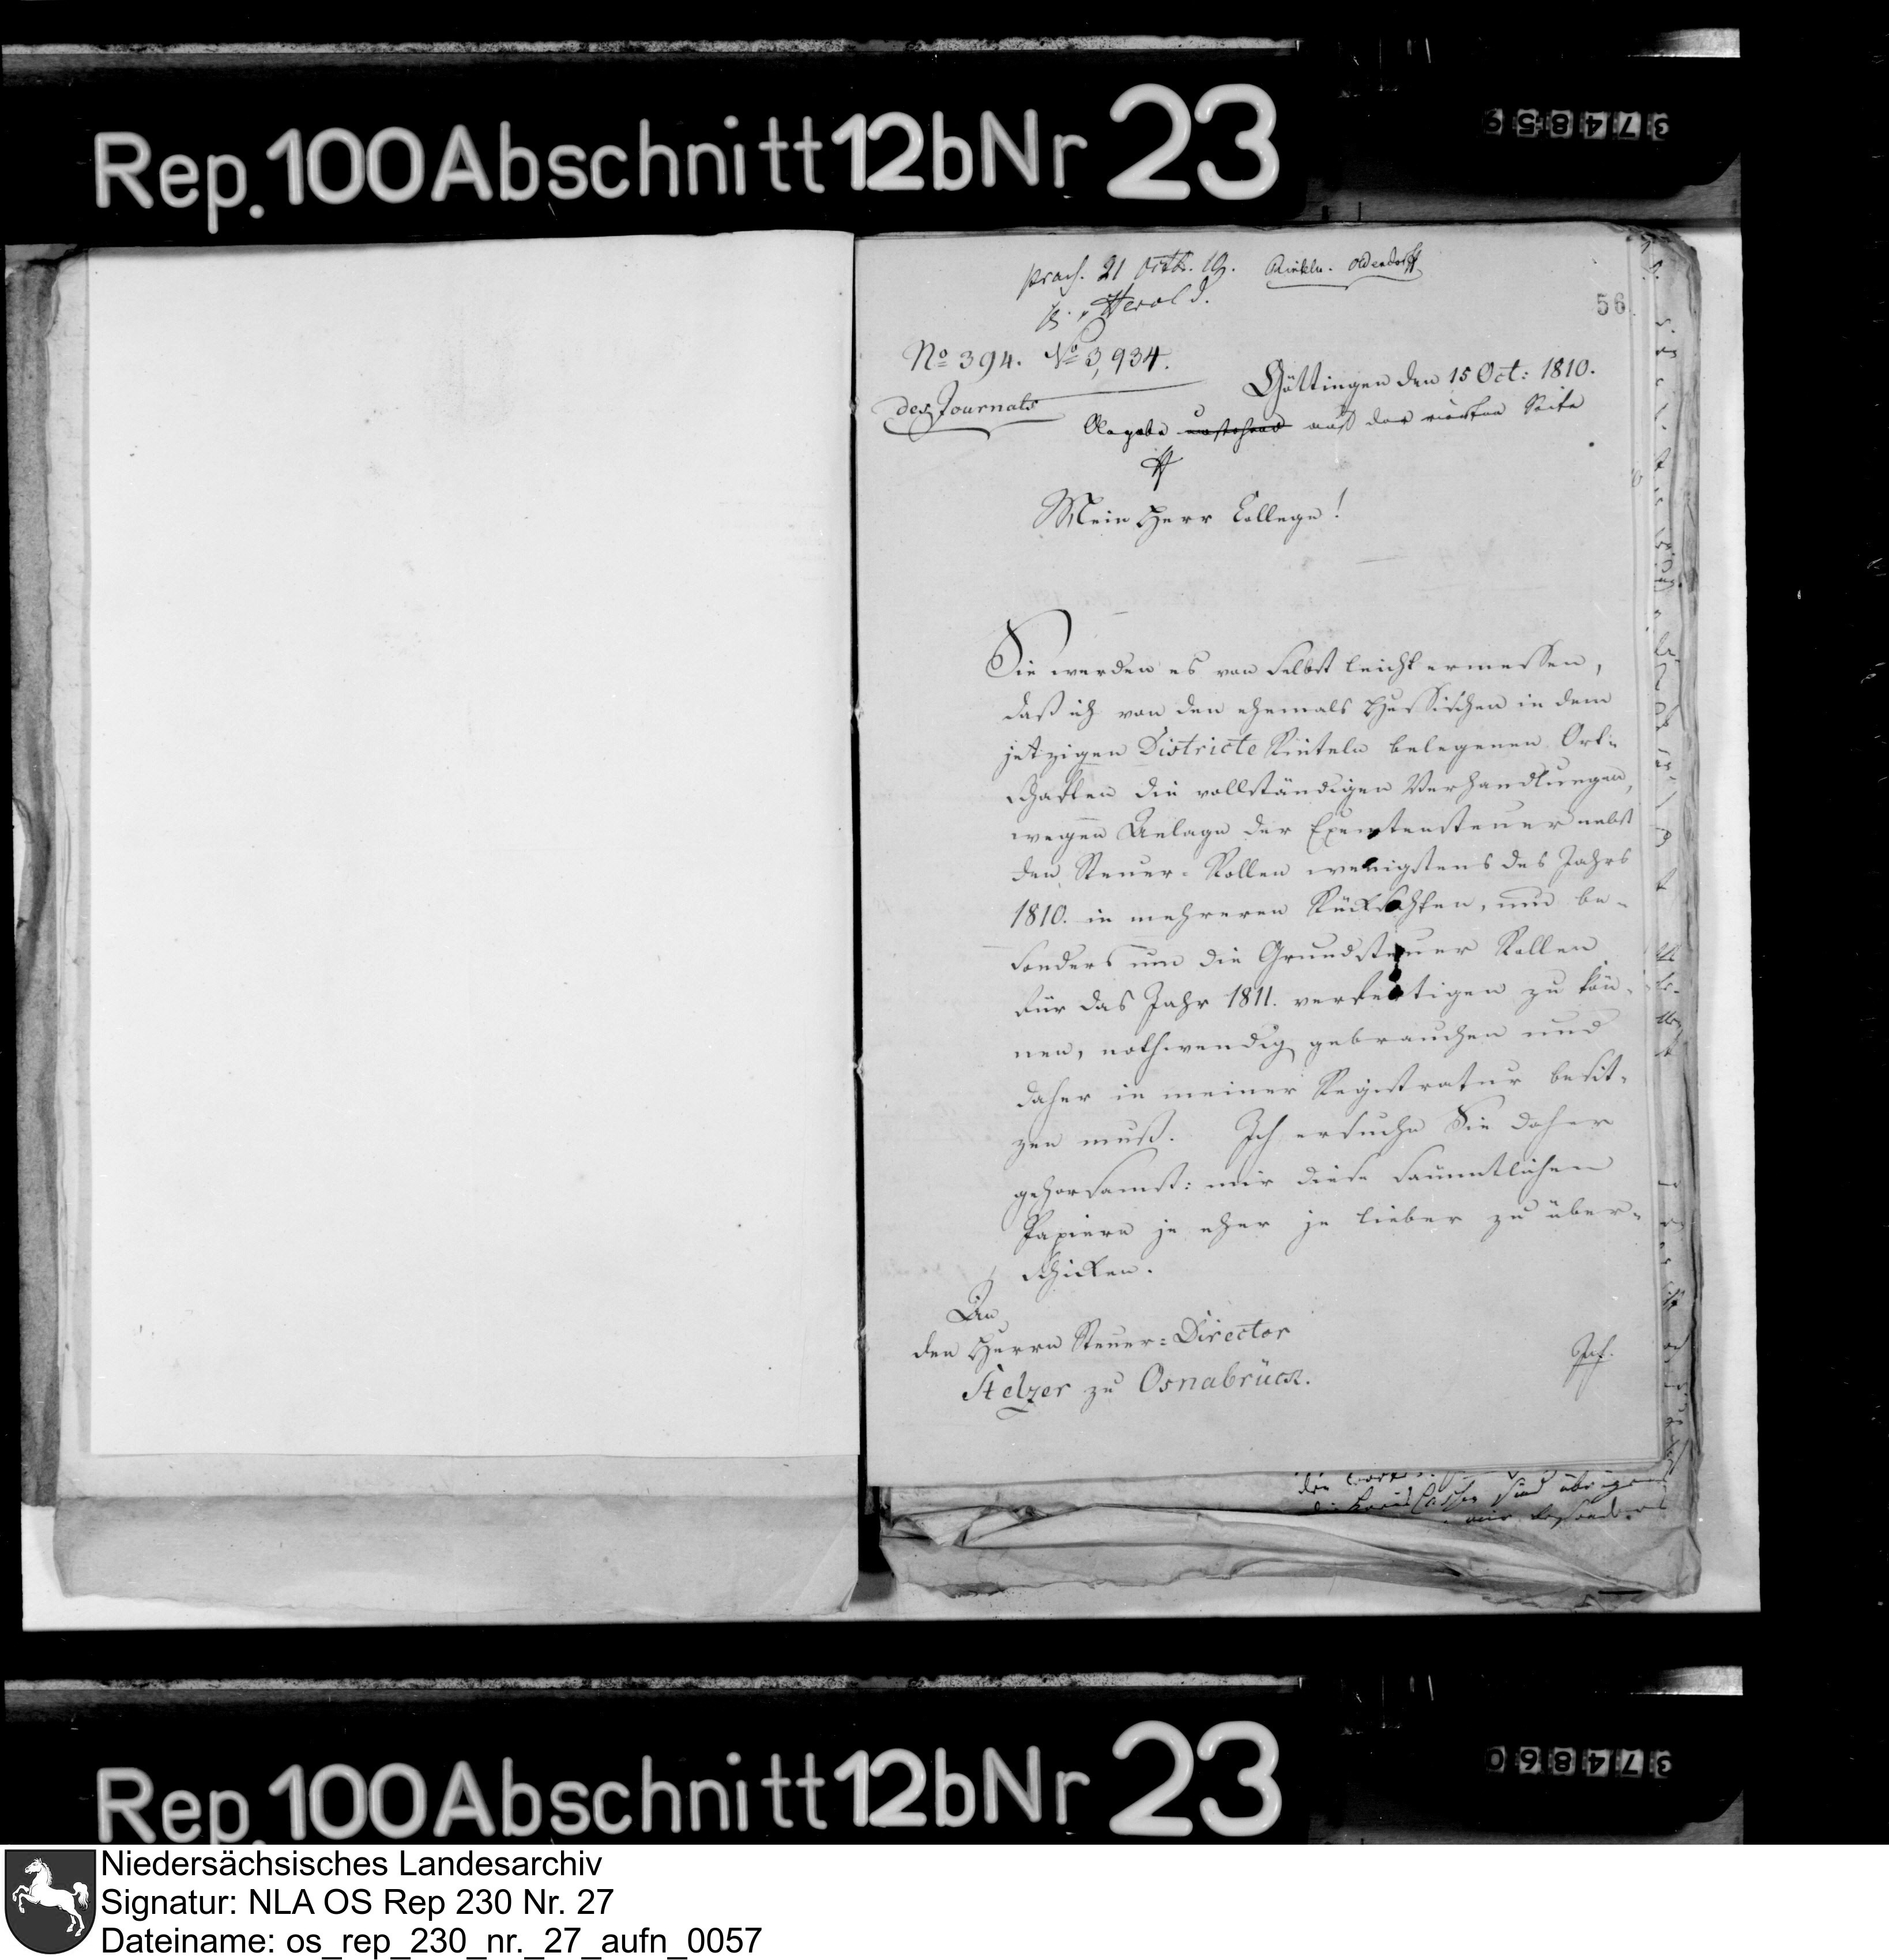 Rep. 100 Abschnitt 12b Nr 23
374859
praes. 21 Octb. 10. Rinteln. Oldendorff
Herold.
56
No 394. No 3,934.
des Journals
Göttingen den 15 Oct: 1810.
auf der vierten Seite
Mein Herr College!
Sie werden es von selbst leicht ermessen,
daß ich von den ehemals Hessischen in dem
jetzigen Districte Rinteln belegenen Ort-
schaften die vollständigen Verhandlungen,
wegen Anlage der Exemtensteuer nebst
den Steuer-Rollen wenigstens des Jahrs
1810. in mehreren Rücksichten, und be-
sonders um die Grundsteuer Rollen
für das Jahr 1811. verfertigen zu kön-
nen, nothwendig gebrauchen und
daher in meiner Registratur besit-
zen muß. Ich ersuche Sie daher
gehorsamst: mir diese sämmtlichen
Papiere je eher je lieber zu über-
schicken.
An
den Herrn Steuer-Director
Stelzer zu Osnabrück.
Ich
sind übrigens
Rep. 100 Abschnitt 12b Nr 23
374860
Niedersächsisches Landesarchiv
Signatur: NLA OS Rep 230 Nr. 27
Dateiname: os_rep_230_nr._27_aufn_0057